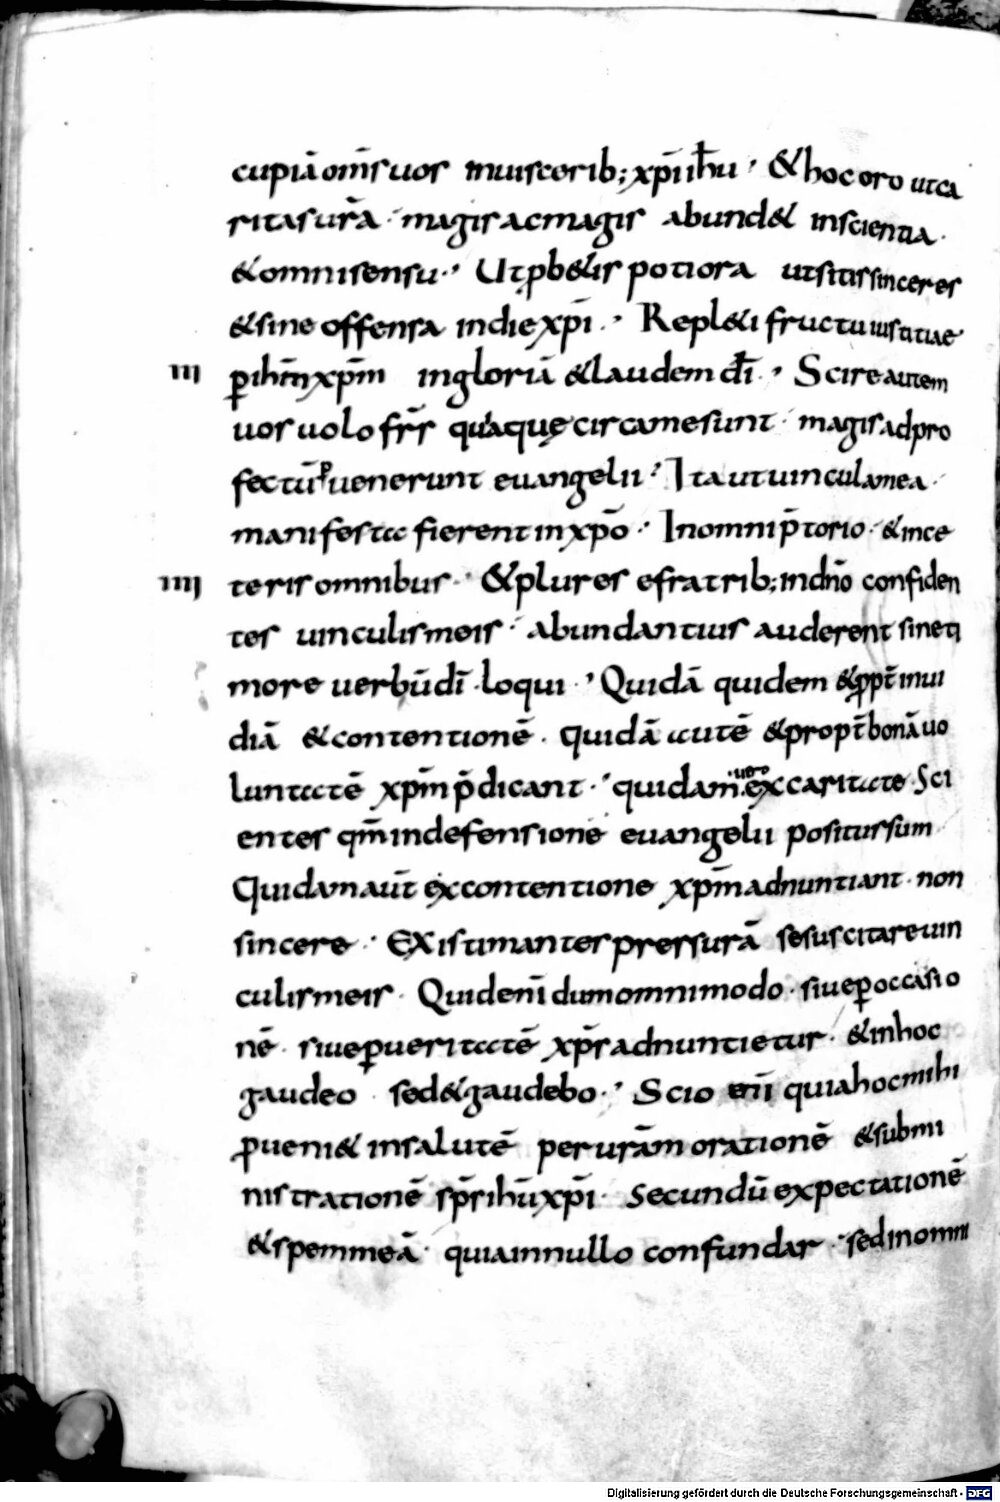 cupiā om̄s uos inuisceribꝫ xp̄i ih̄u · & hoc oro utca
ritas ur̄a · magis acmagis abund& inscientia ·
& omnisensu · Ut ꝓb&is potiora utsitis sinceres
& sine offensa indie xp̄i · Repl&i fructu iustitiae
III
ꝑ ih̄m xp̄m ingloriā & laudem d̄i · Scire autem
uos uolo fr̄s quaquę circamesunt · magis adpro
fectū puenerunt euangelii · Ita utuincula mea ·
manifesta fierent in xp̄o · Inomni p̄torio · & ince
IIII
teris omnibus · & plures efratribꝫ indn̄o confiden
tes uinculis meis · abundantius auderent sineti
more uerbū dī loqui · Quidā quidem & ꝓpt̄ inui
diā & contentionē · quidā autē & propt̄ bonā uo
luntatē xp̄m p̄dicant · quidam uero excaritate · Sci
entes qm̄ indefensione euangelii positus sum
Quidam aut̄ excontentione xp̄m adnuntiant · non
sincere · Existimantes pressurā sesuscitare uin
culis meis · Quid en̄i dum omnimodo · siue ꝑ occasio
nē · siue ꝑ ueritatē xp̄s adnuntietur · & inhoc
gaudeo sed & gaudebo · Scio en̄i quia hoc mihi
ꝓueni& insalutē per ur̄am orationē & submi
nistrationē sp̄s ih̄u xp̄i · Secundū expectationē
& spem meā · quia innullo confundar · sed inomni
Digitalisierung gefördert durch die Deutsche Forschungsgemeinschaft - DFG